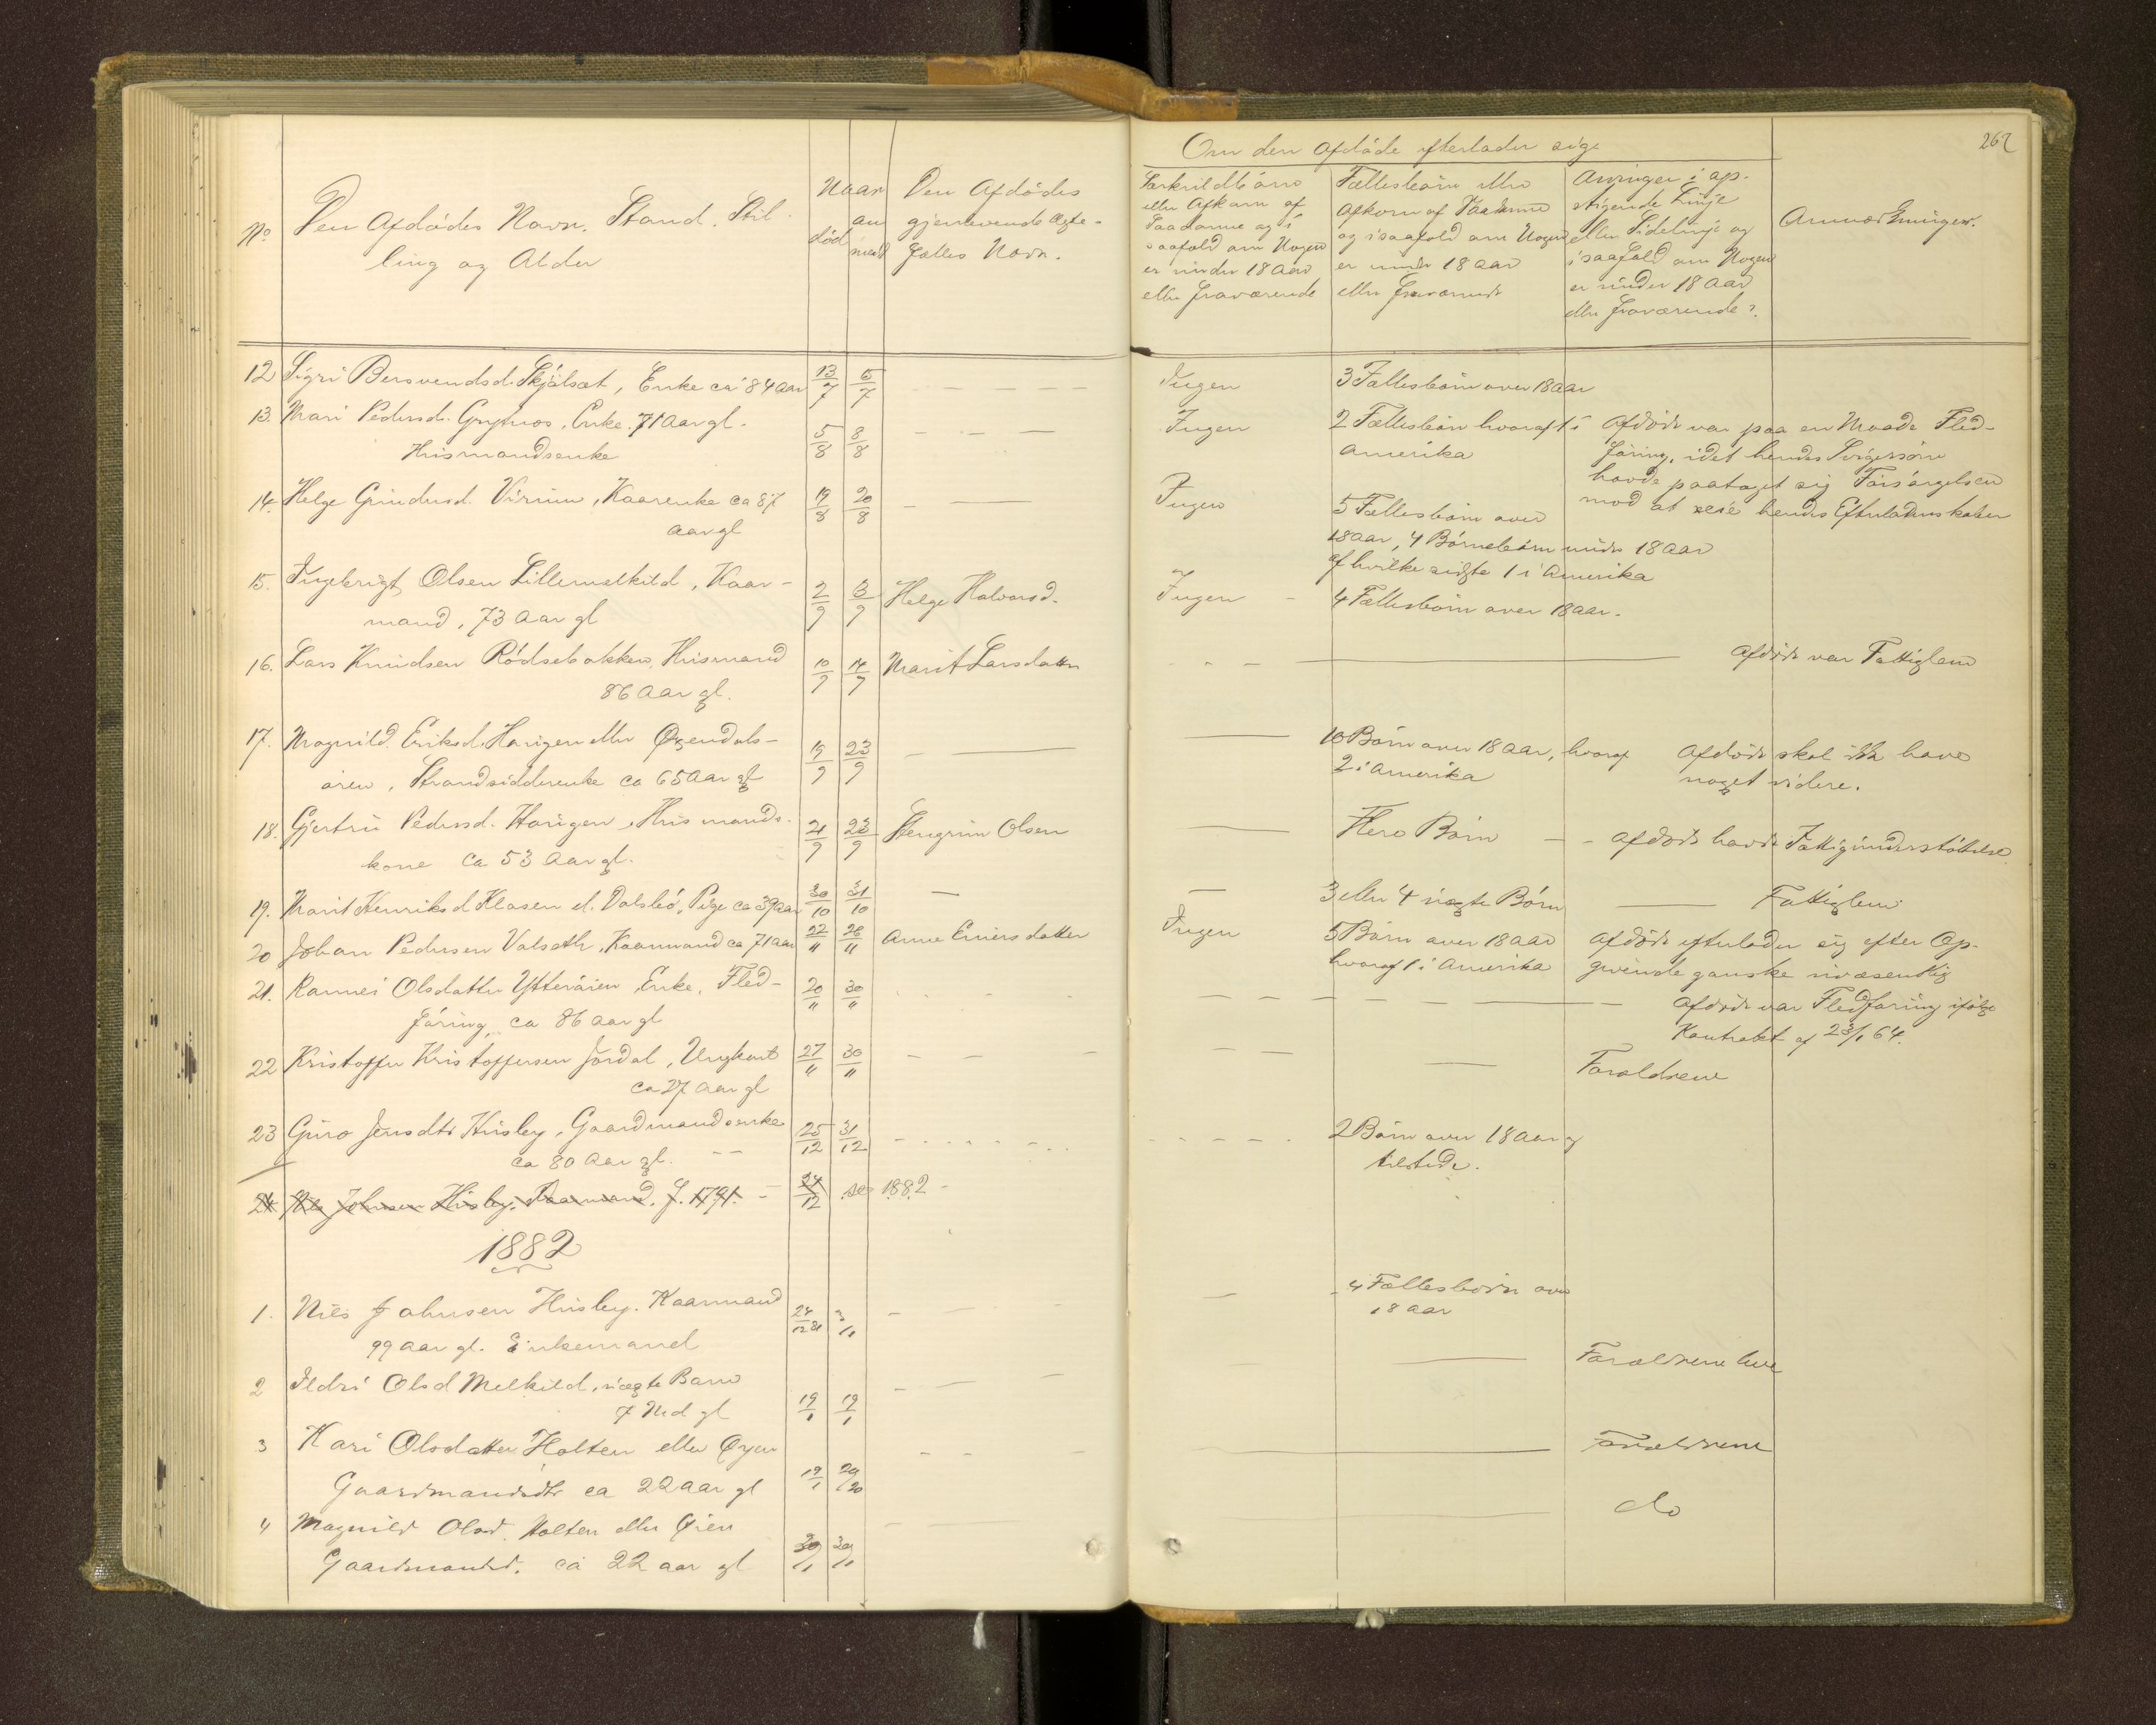 262
Om den Afdøde efterlader sig:
No
Den Afdødes Navn, Stand, Stil-
ling og Alder
Naar
død
an
meldt
Den Afdødes
gjenlevende Ægte-
fælles Navn.
Særkuldbørn
eller Afkom af
Saadanne og i
saafald om Nogen
er under 18 Aar
eller fraværende
Fællesbørn eller
Afkom af Saadanne
og i saafald om Nogen
er under 18 Aar
eller fraværende
Arvinger i op-
stigende Linje
eller Sidelinje og
i saafald om Nogen
er under 18 Aar
eller fraværende?
Anmærkninger.
12 Sigri Bersvendsd. Skjølsæt, Enke ca 84 Aar 13/7 5/7 Ingen 3 Fællesbørn over 18 Aar
13. Mari Pedersd. Grytnes, Enke. 71 Aar gl. 5/8 8/8 Ingen 2 Fællesbørn hvoraf 1 i Afdøde var paa en Maade Fled-
Husmandsenke Amerika føring, idet hendes Svigersøn
havde paataget sig Forsørgelsen
mod at eie hendes Efterladenskaber
14. Helge Gundersd. Virum, Kaarenke ca 87 19/8 20/8 Ingen 5 Fællesbørn over
Aar gl 18 Aar, 4 Børnebørn under 18 Aar
af hvilke sidste 1 i Amerika
15. Ingebrigt Olsen Lillemelkild, Kaar- 2/9 3/9 Helge Halvorsd. Ingen 4 Fællesbørn over 18 Aar.
mand, 73 Aar gl
16. Lars Knudsen Rødsebakken, Husmand 10/9 14/9 Marit Larsdatter Afdøde var Fattiglem
86 Aar gl.
17. Magnild Eriksd. Harigen eller Øxendals-
øren, Strandsidderenke ca 65 Aar gl 19/9 23/9 10 Børn over 18 Aar, hvoraf Afdøde skal ikke have
2 i Amerika noget videre.
18. Gjertru Pedersd. Harigen, Husmands- 21/9 23/9 Stengrim Olsen Flere Børn Afdøde havde Fattigunderstøttelse
kone ca 53 Aar gl.
19. Marit Henriksd Klasen el. Dalsbø, Pige ca 39 Aar 30/10 31/10 3 eller 4 uægte Børn Fattiglem
20 Johan Pedersen Valsæth, Kaarmand ca 71 Aar 22/11 26/11 Anne Einersdatter Ingen 5 Børn over 18 Aar Afdøde efterlader sig efter Op-
hvoraf 1 i Amerika givende ganske uvæsentlig
21. Rannei Olsdatter Ytterøien Enke, Fled- 20/11 30/11 Afdøde var Fledføring ifølge
føring, ca 86 Aar gl Kontrakt af 23/1 64.
22 Kristoffer Kristoffersen Jordal, Ungkarl 27/11 30/11 Forældrene
ca 27 Aar gl
23 Guro Jensdtr Husby, Gaardmandsenke 25/12 31/12 2 Børn over 18 Aar og
ca 80 Aar gl. tilstede.
24 Nils Johnsen Husby, Kaarmand, f. 1791. 24/12 se 1882
1882
1. Nils Johnsen Husby. Kaarmand 24/12 81 3/1 4 Fællesbørn over
99 Aar gl. Enkemand 18 Aar
2 Ildri Olsd Melkild, uægte Barn Forældrene leve
7 Md gl 19/1 19/1
3 Kari Olsdatter Holten eller Øyen Forældrene
Gaardmandsdtr ca 22 Aar gl 19/1
4 Magnild Olsd. Holten eller Øien do
Gaardmandsd. ca 22 aar gl